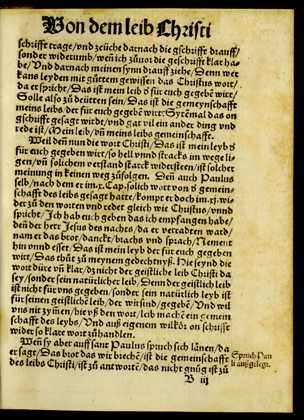 Von dem leib Christi
schrifft trage/vnd zeüche darnach die gschrifft drauff/
sonder widerumb/wen ich zůuor die geschrifft klar ha-
be/Vnd darnach meinen synn drauff ziehe/Denn wer
kans leyden mit gůttem gewissen das Christus wort/
da er spricht/Das ist mein leib d für euch gegebē wirt/
Solle also zů deütten sein/Das ist die gemeynschafft
meins leibs der für euch gegebē wirt/Syteemal das on
gschrifft gesagt wirdt/vnd gar vil ein ander ding vnd
rede ist/Mein leib/vñ meins leibs gemeinschafft.
Weil denn nun die wort Christi/Das ist mein leyb d
für euch gegeben wirt/so hell vnnd starck im wege li-
gen/vñ solichen verstand starck widersteen/ist solcher
meinung in keinen weg zůuolgen. Deñ auch Paulus
selb/nach dem er im .x. Cap. solich wort von d gemein-
schafft des leibs gesagt hatte/kompt er doch im .xj. wi-
der zů den worten vnd redet gleich wie Christus/vnnd
spricht/Ich hab euch geben das ich empfangen habe/
den der herr Jesus des nachts/da er verratten ward/
nam er das brot/danckt/brachs vnd sprach/Nement
hin vnnd esset. Das ist mein leyb der für euch gegeben
wirt/Das thůt zů meynem gedechtnyß. Die seynd die
wort dürr vñ klar/dz nicht der geistliche leib Christi da
sey/sonder sein natürlicher leib. Denn der geistlich leib
ist nicht für vns gegeben/sonder sein natürlich leyb ist
für seinen geistlichē leib/der wir sind/gegebē/Vnd wil
vns nit zymen/hie vß den wort/mein leib machē ein gemein
schafft des leybs/Vnd auß eygnem wilkör on schrifft
wider so klare wort zů handlen.
Wen sy aber auff sant Paulus spruch sich länen/da
er sagt/Das brot das wir brechē/ist die gemeinschafft
des leibs Christi/ist zů antwortē/das nicht gnůg ist zů
Spruch Pau
li außgelegt.
B iij